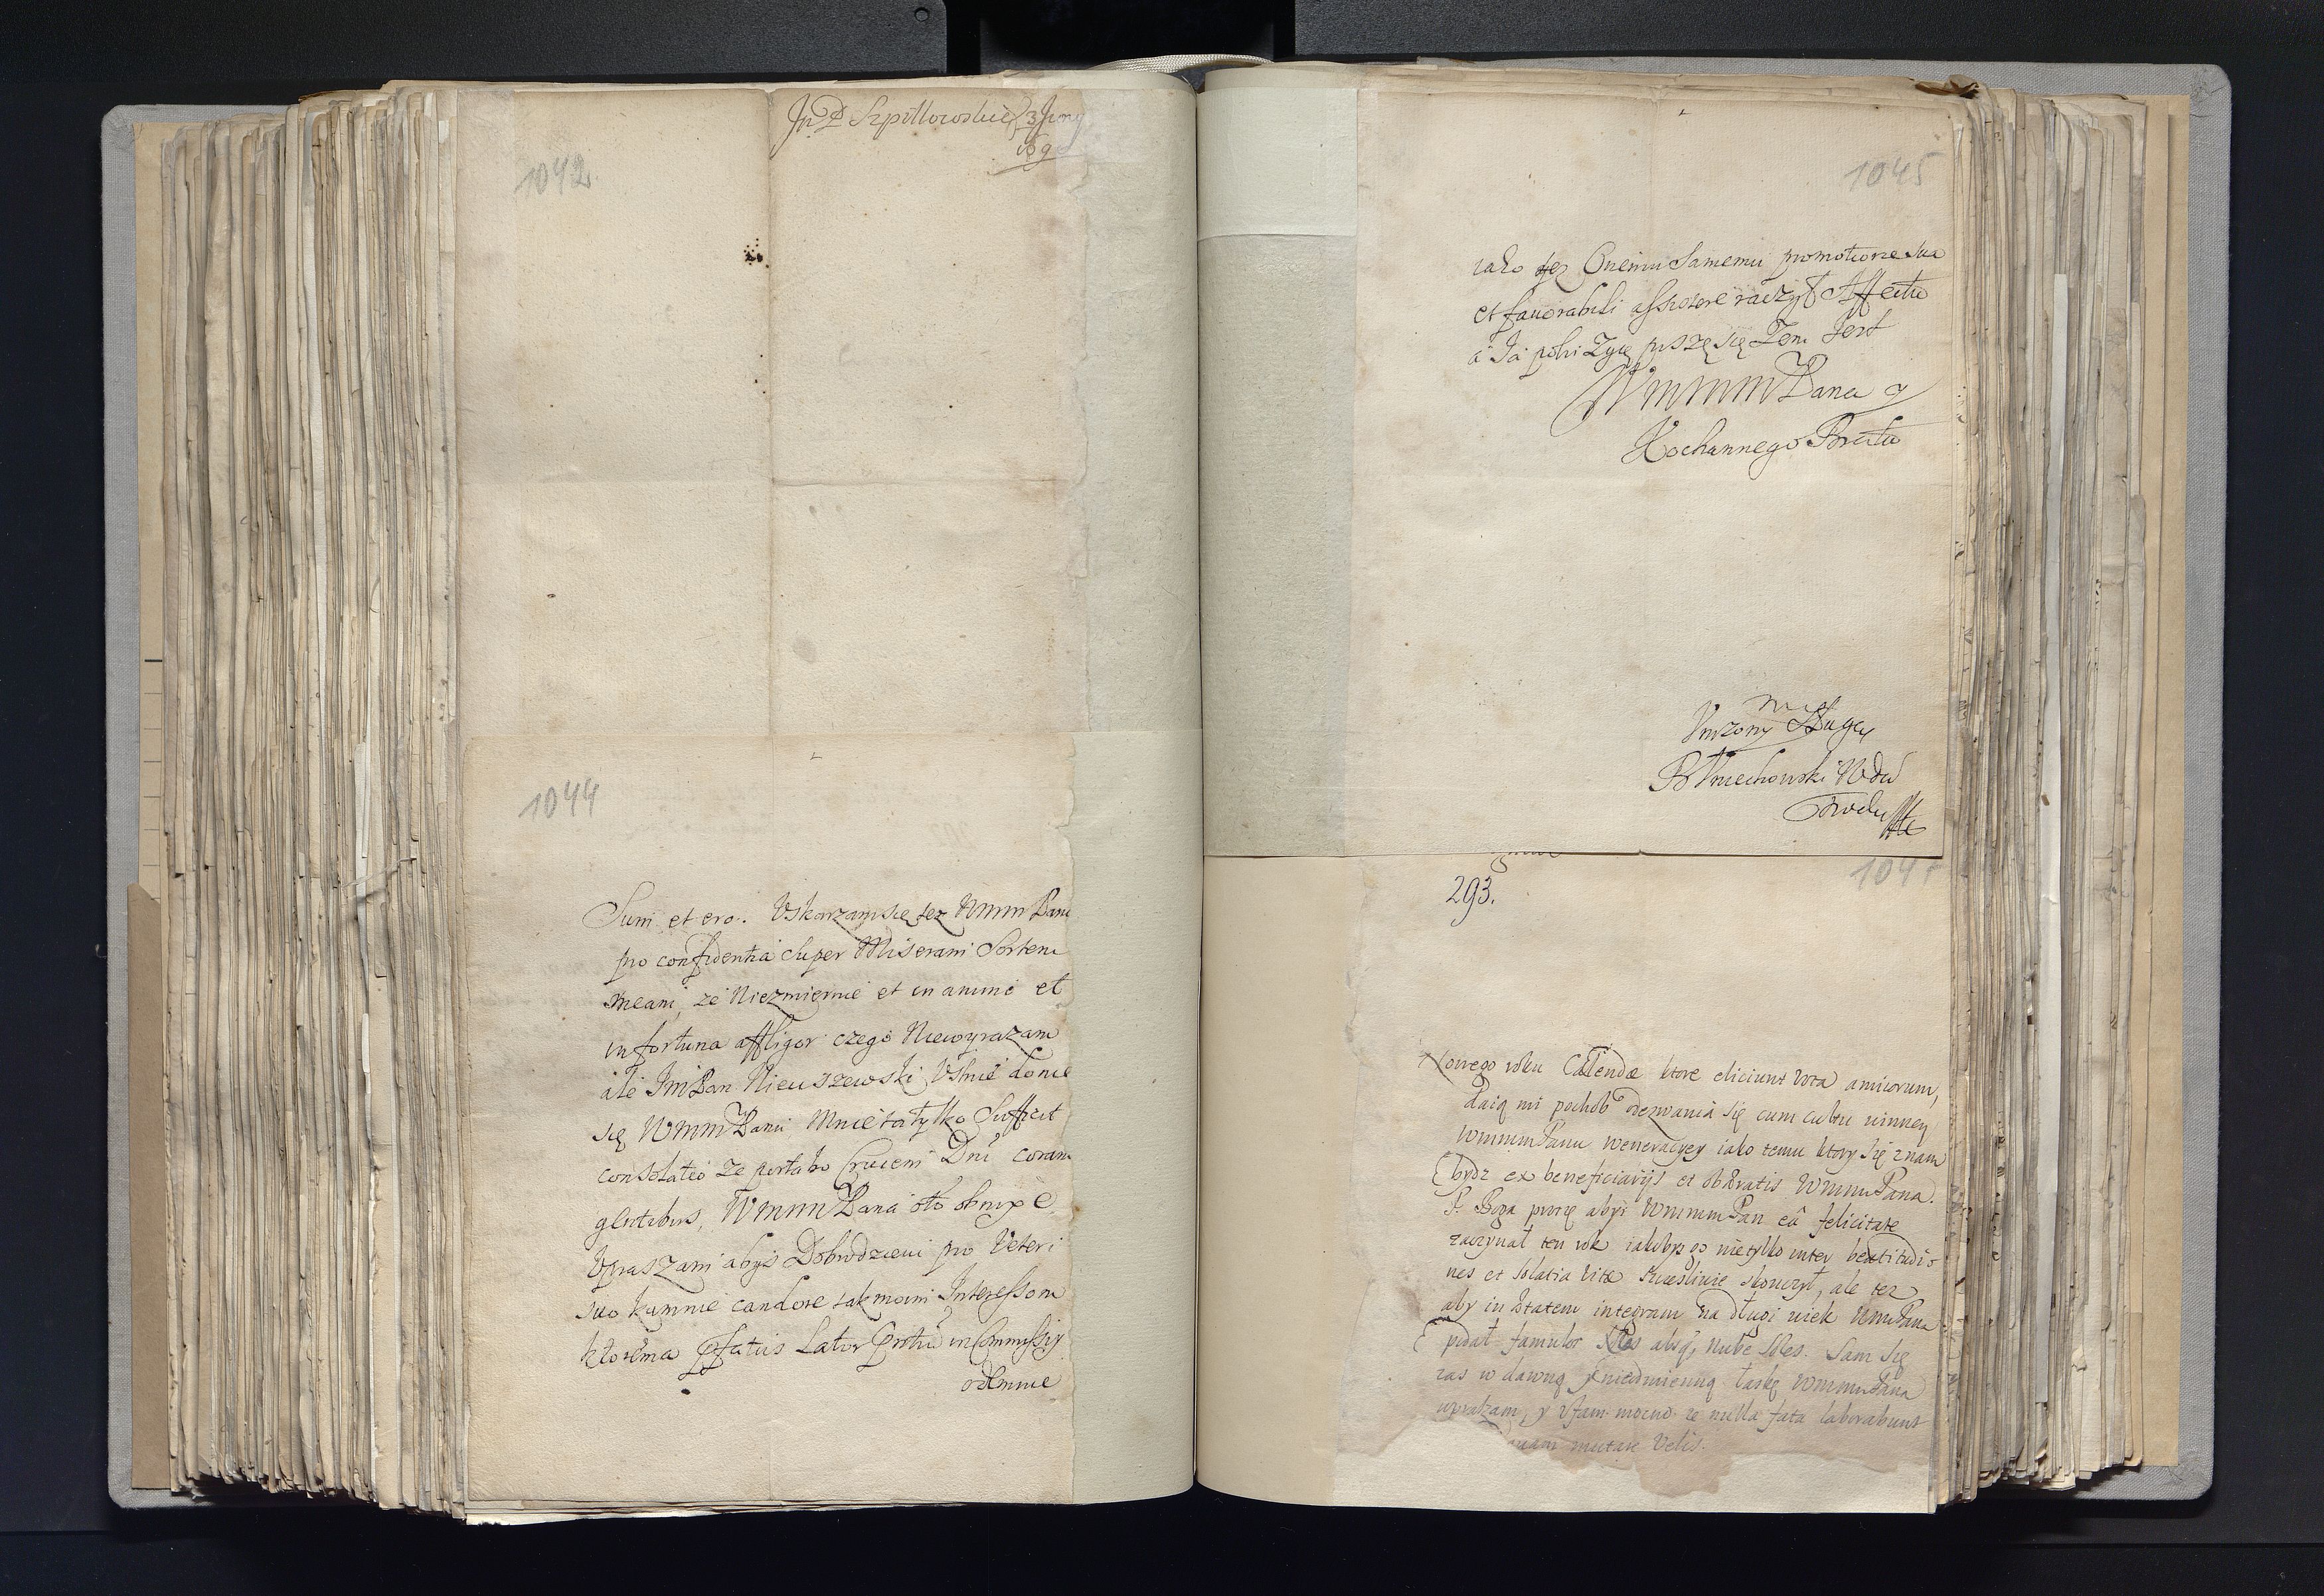 1042
Szpillowskie 3 Juny
169
1044
Sum et ero. Uskarzam się tez Wmm Panu
pro confidentia super Miseram Sortem
meam, ze Niezmiernie et in animo et
in fortuna affligor czego Niewyrazam
ale ImPan Nieuszewski Ustnie donie
się WMMPanu Mnie ta tylko Sufficit
consolatio ze porto Crucem Dni coram
gentibus, WmmPana oto obnixe
Upraszam abys Dobrodzieiu pro Veteri
suo kumnie candore tak moim Interessom
ktore ma Lator in Commissy
odemnie
1045
iako tez Onemu Samemu promotione sua
et fauorabili assistere raczył Affectu
a Ja poki Zyię piszę się Zem Jest
WmmmPana
Kochannego Brata
Unizony Sługa
Wda
293.
104
Nowego roku Calendæ ktore eliciunt vota amicorum,
daią mi pochob odezwania się cum cultu uinney
WmmmPanu weneracyey iako temu ktory się znam
bydz ex beneficiarijs et obæratis WmmPana.
P. Boga proszę abys WmmmPan eâ felicitate
zaczynał ten rok iakobys go nietylko inter beatitudi-
nes et solatia vitæ szczesliwie skonczył, ale tez
aby in ætatem integram na długi wiek WmPana
absq; nube Soles. Sam się
zas w dawną y nieodmienną łaskę WmmmPana
upraszam, y Ufam mocno ze nulla fata laborabunt
mutare Velis.